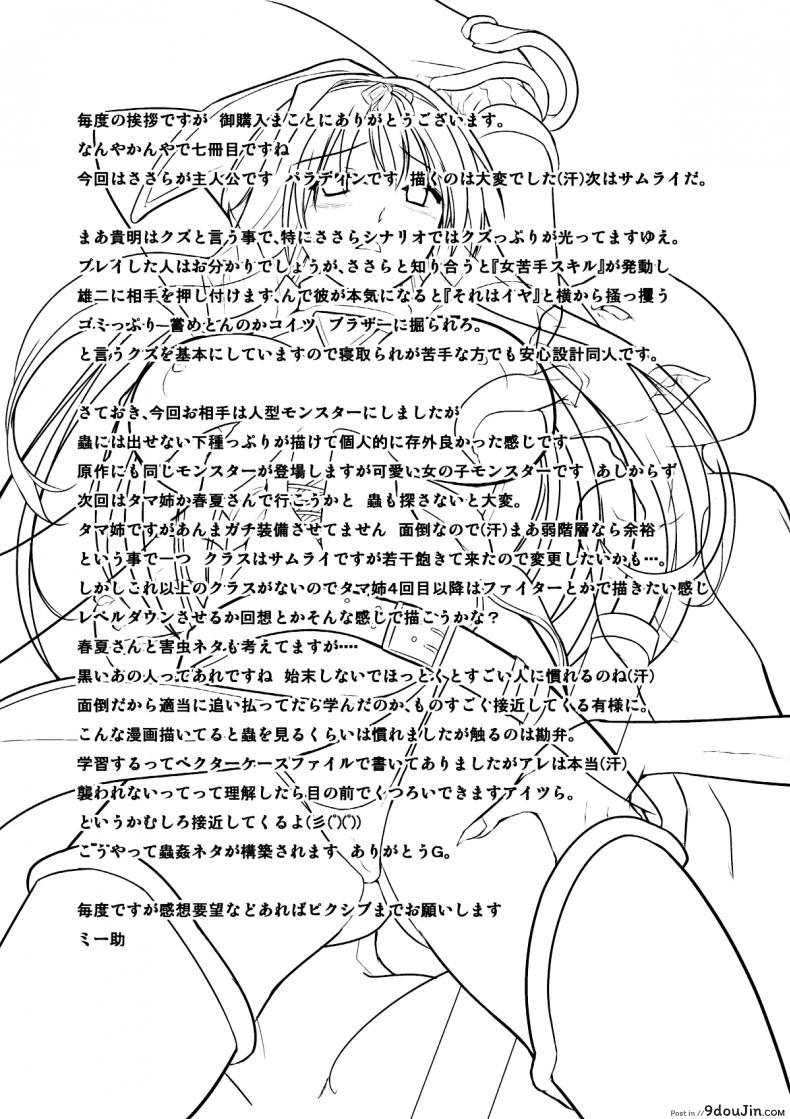 毎度の挨拶ですが　御購入まことにありがとうございます。
なんやかんやで七冊目ですね
今回はささらが主人公です　パラディンです　描くのは大変でした(汗)次はサムライだ。
まあ貴明はクズと言う事で、特にささらシナリオではクズっぷりが光ってますゆえ。
プレイした人はお分かりでしょうが、ささらと知り合うと『女苦手スキル』が発動し
雄二に相手を押し付けます、んで彼が本気になると『それはイヤ』と横から掻っ攫う
ゴミっぷり―嘗めとんのかコイツ　ブラザーに掘られろ。
と言うクズを基本にしていますので寝取られが苦手な方でも安心設計同人です。
さておき、今回お相手は人型モンスターにしましたが
蟲には出せない下種っぷりが描けて個人的に存外良かった感じです
原作にも同じモンスターが登場しますが可愛い女の子モンスターです　あしからず
次回はタマ姉か春夏さんで行こうかと　蟲も探さないと大変。
タマ姉ですがあんまガチ装備させてません　面倒なので(汗)まあ弱階層なら余裕
という事で一つ　クラスはサムライですが若干飽きて来たので変更したいかも…。
しかしこれ以上のクラスがないのでタマ姉4回目以降はファイターとかで描きたい感じ
レベルダウンさせるか回想とかそんな感じで描こうかな？
春夏さんと害虫ネタも考えてますが‥‥
黒いあの人ってあれですね　始末しないでほっとくとすごい人に慣れるのね(汗)
面倒だから適当に追い払ってたら学んだのか、ものすごく接近してくる有様に。
こんな漫画描いてると蟲を見るくらいは慣れましたが触るのは勘弁。
学習するってベクターケースファイルで書いてありましたがアレは本当(汗)
襲われないってって理解したら目の前でくつろいできますアイツら。
というかむしろ接近してくるよ(彡(ﾟ)(ﾟ))
こうやって蟲姦ネタが構築されます　ありがとうG。
毎度ですが感想要望などあればピクシブまでお願いします
ミー助
Post in // 9douJin.com